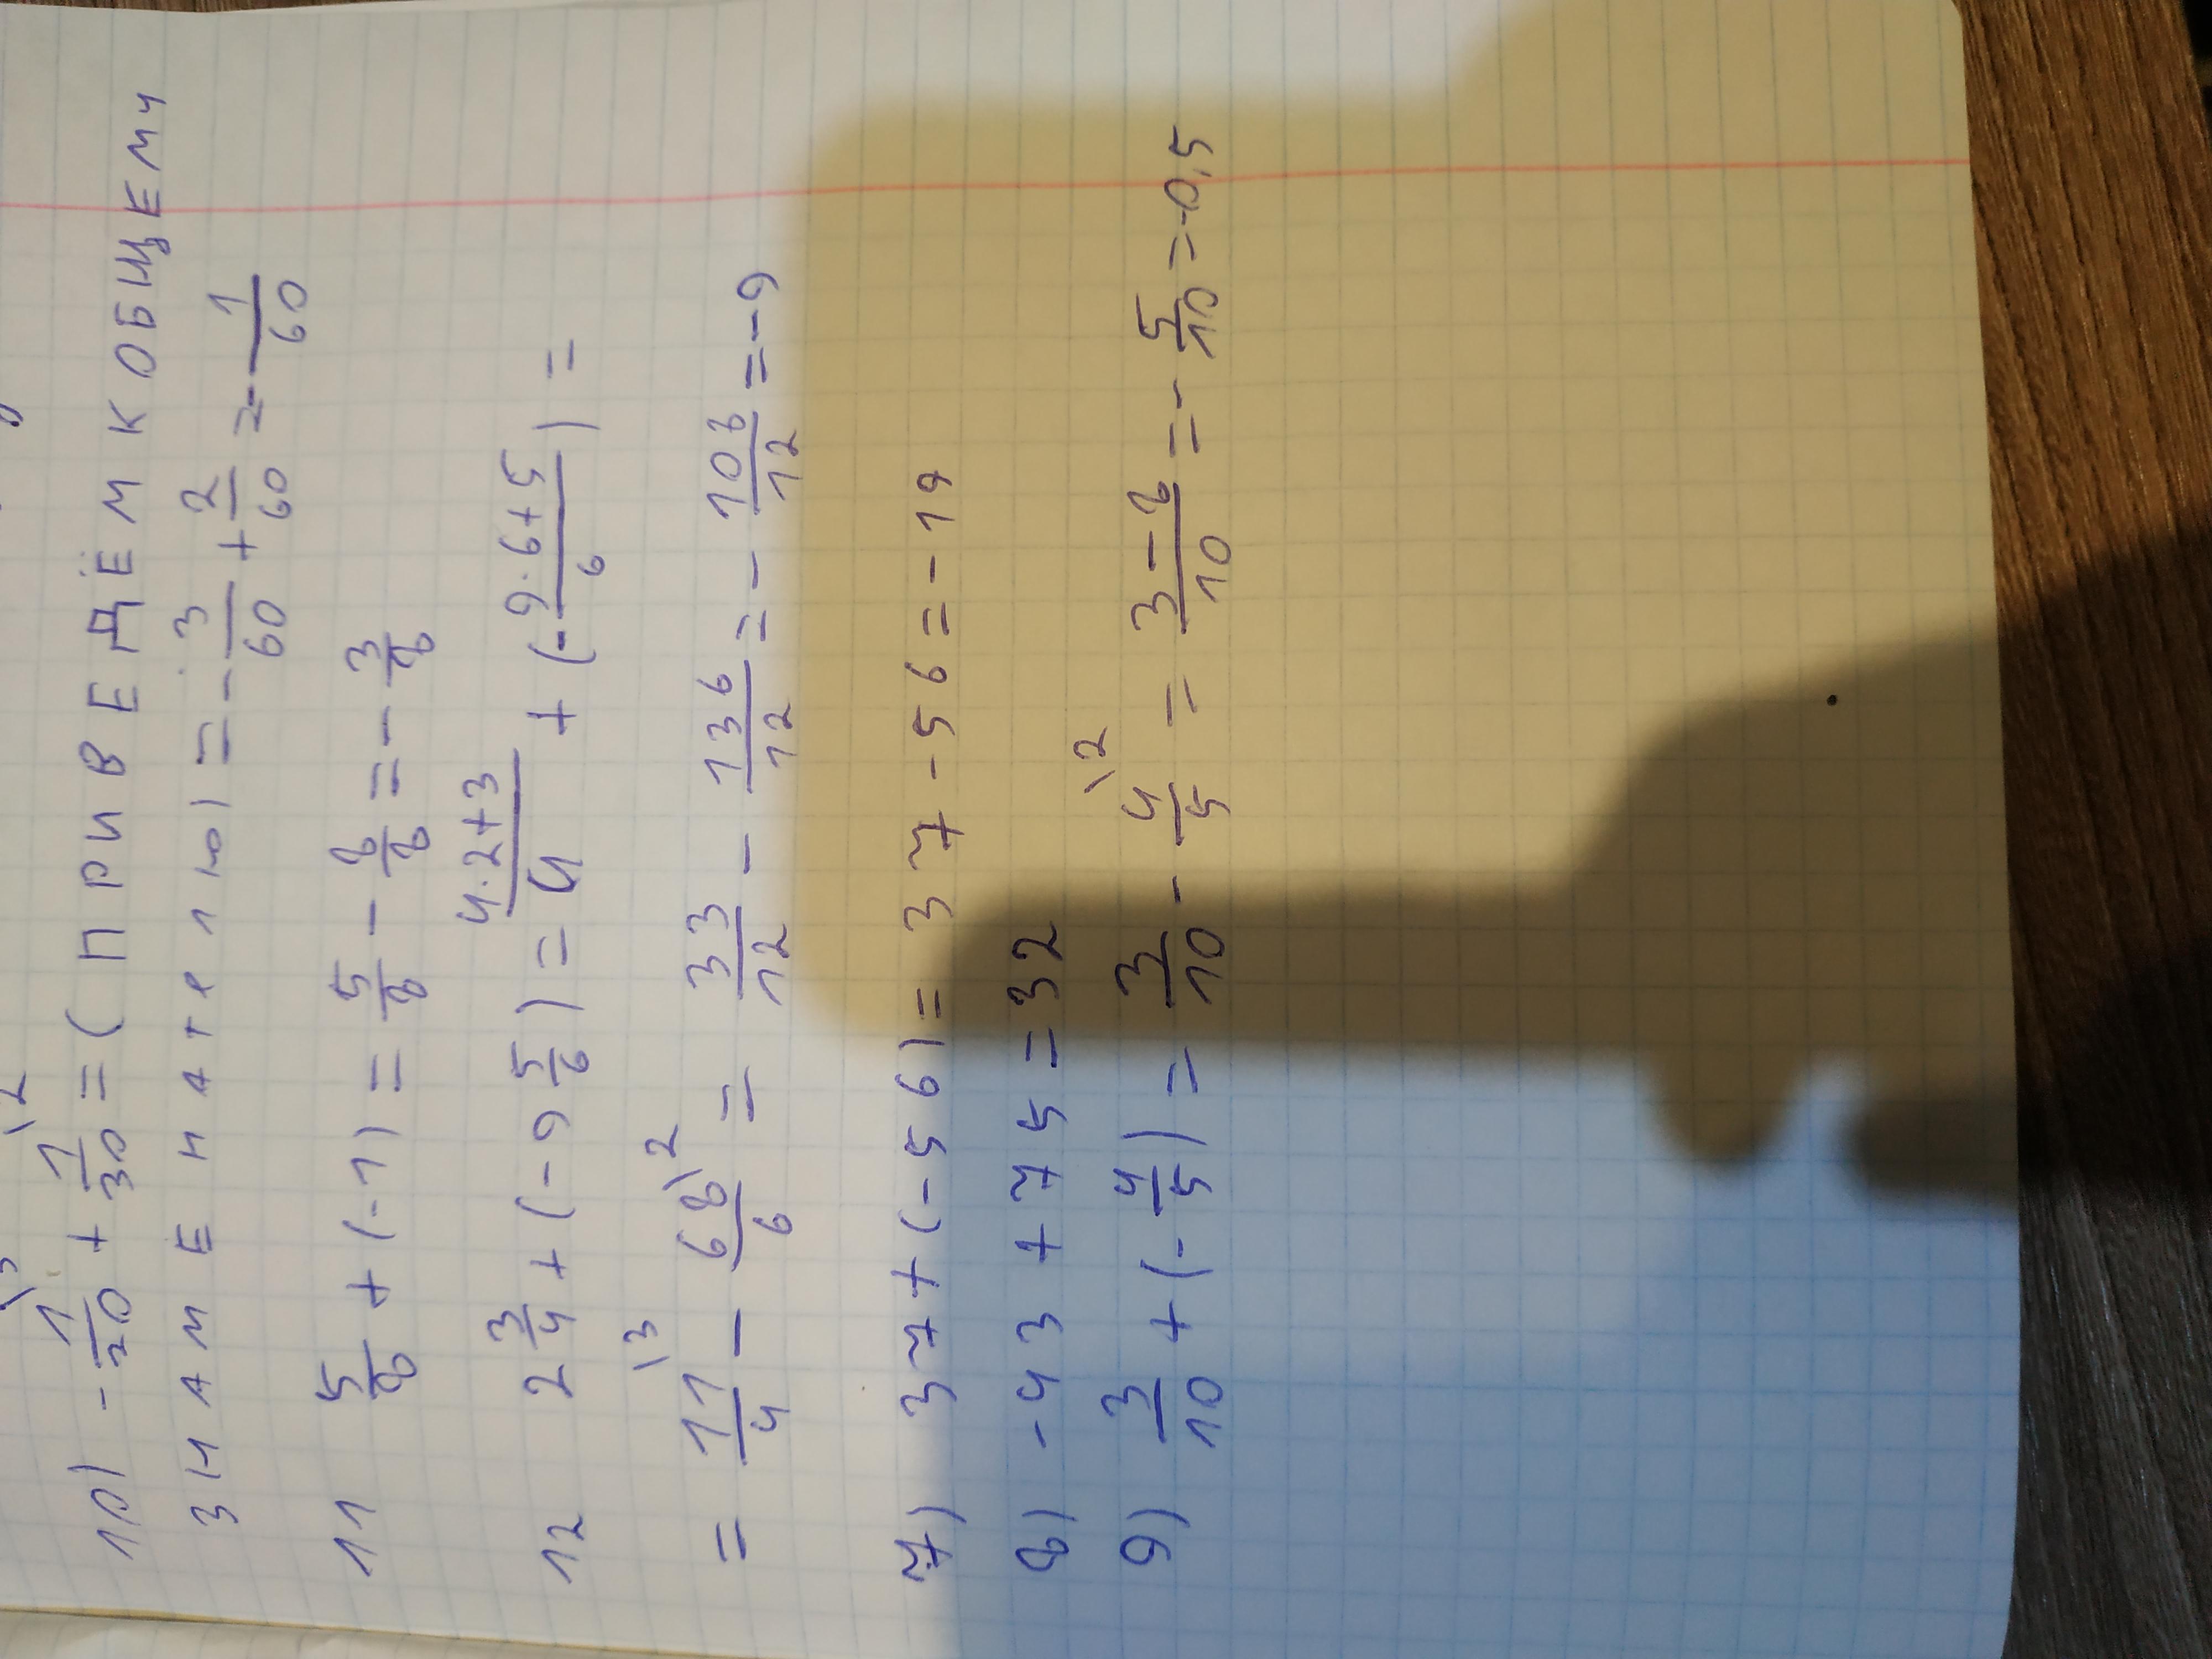 10) - 1/20 \3 + 1/30 \2 = (ПРИВЕДЁМ К ОБЩЕМУ
ЗНАМЕНАТЕЛЮ) = - 3/60 + 2/60 = - 1/60
11 5/8 + (-1) = 5/8 - 8/8 = - 3/8
12 2 3/4 + (-9 5/6) = 4·2+3/4 + (- 9·6+5/6) =
= 11/4 \3 - 68/6 \2 = 33/12 - 136/12 = - 108/12 = -9
7) 37 + (-56) = 37 - 56 = -19
8) -43 + 75 = 32
9) 3/10 + (- 4/5) = 3/10 - 4/5 \2 = 3-8/10 = - 5/10 = -0,5